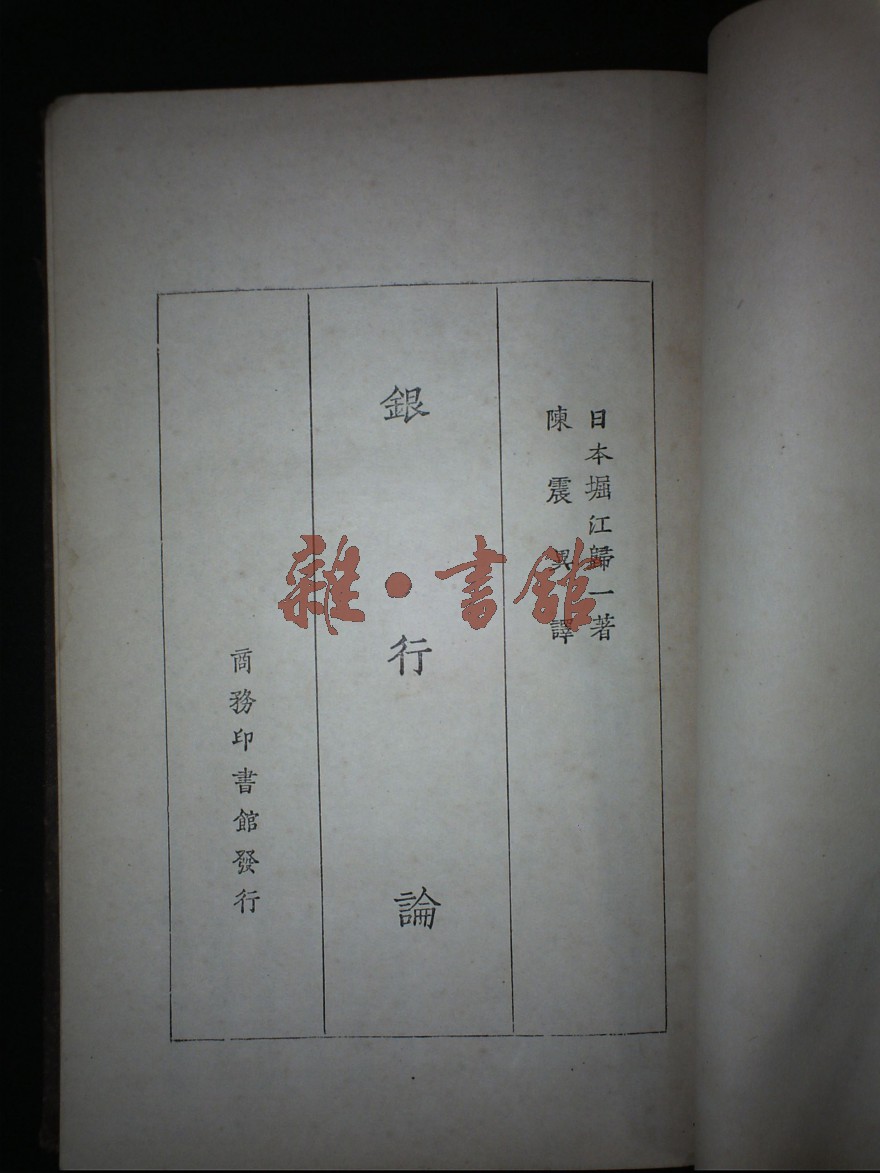 日本堀江歸一著
陳震異譯
銀行論
商務印書館發行
雜·書館